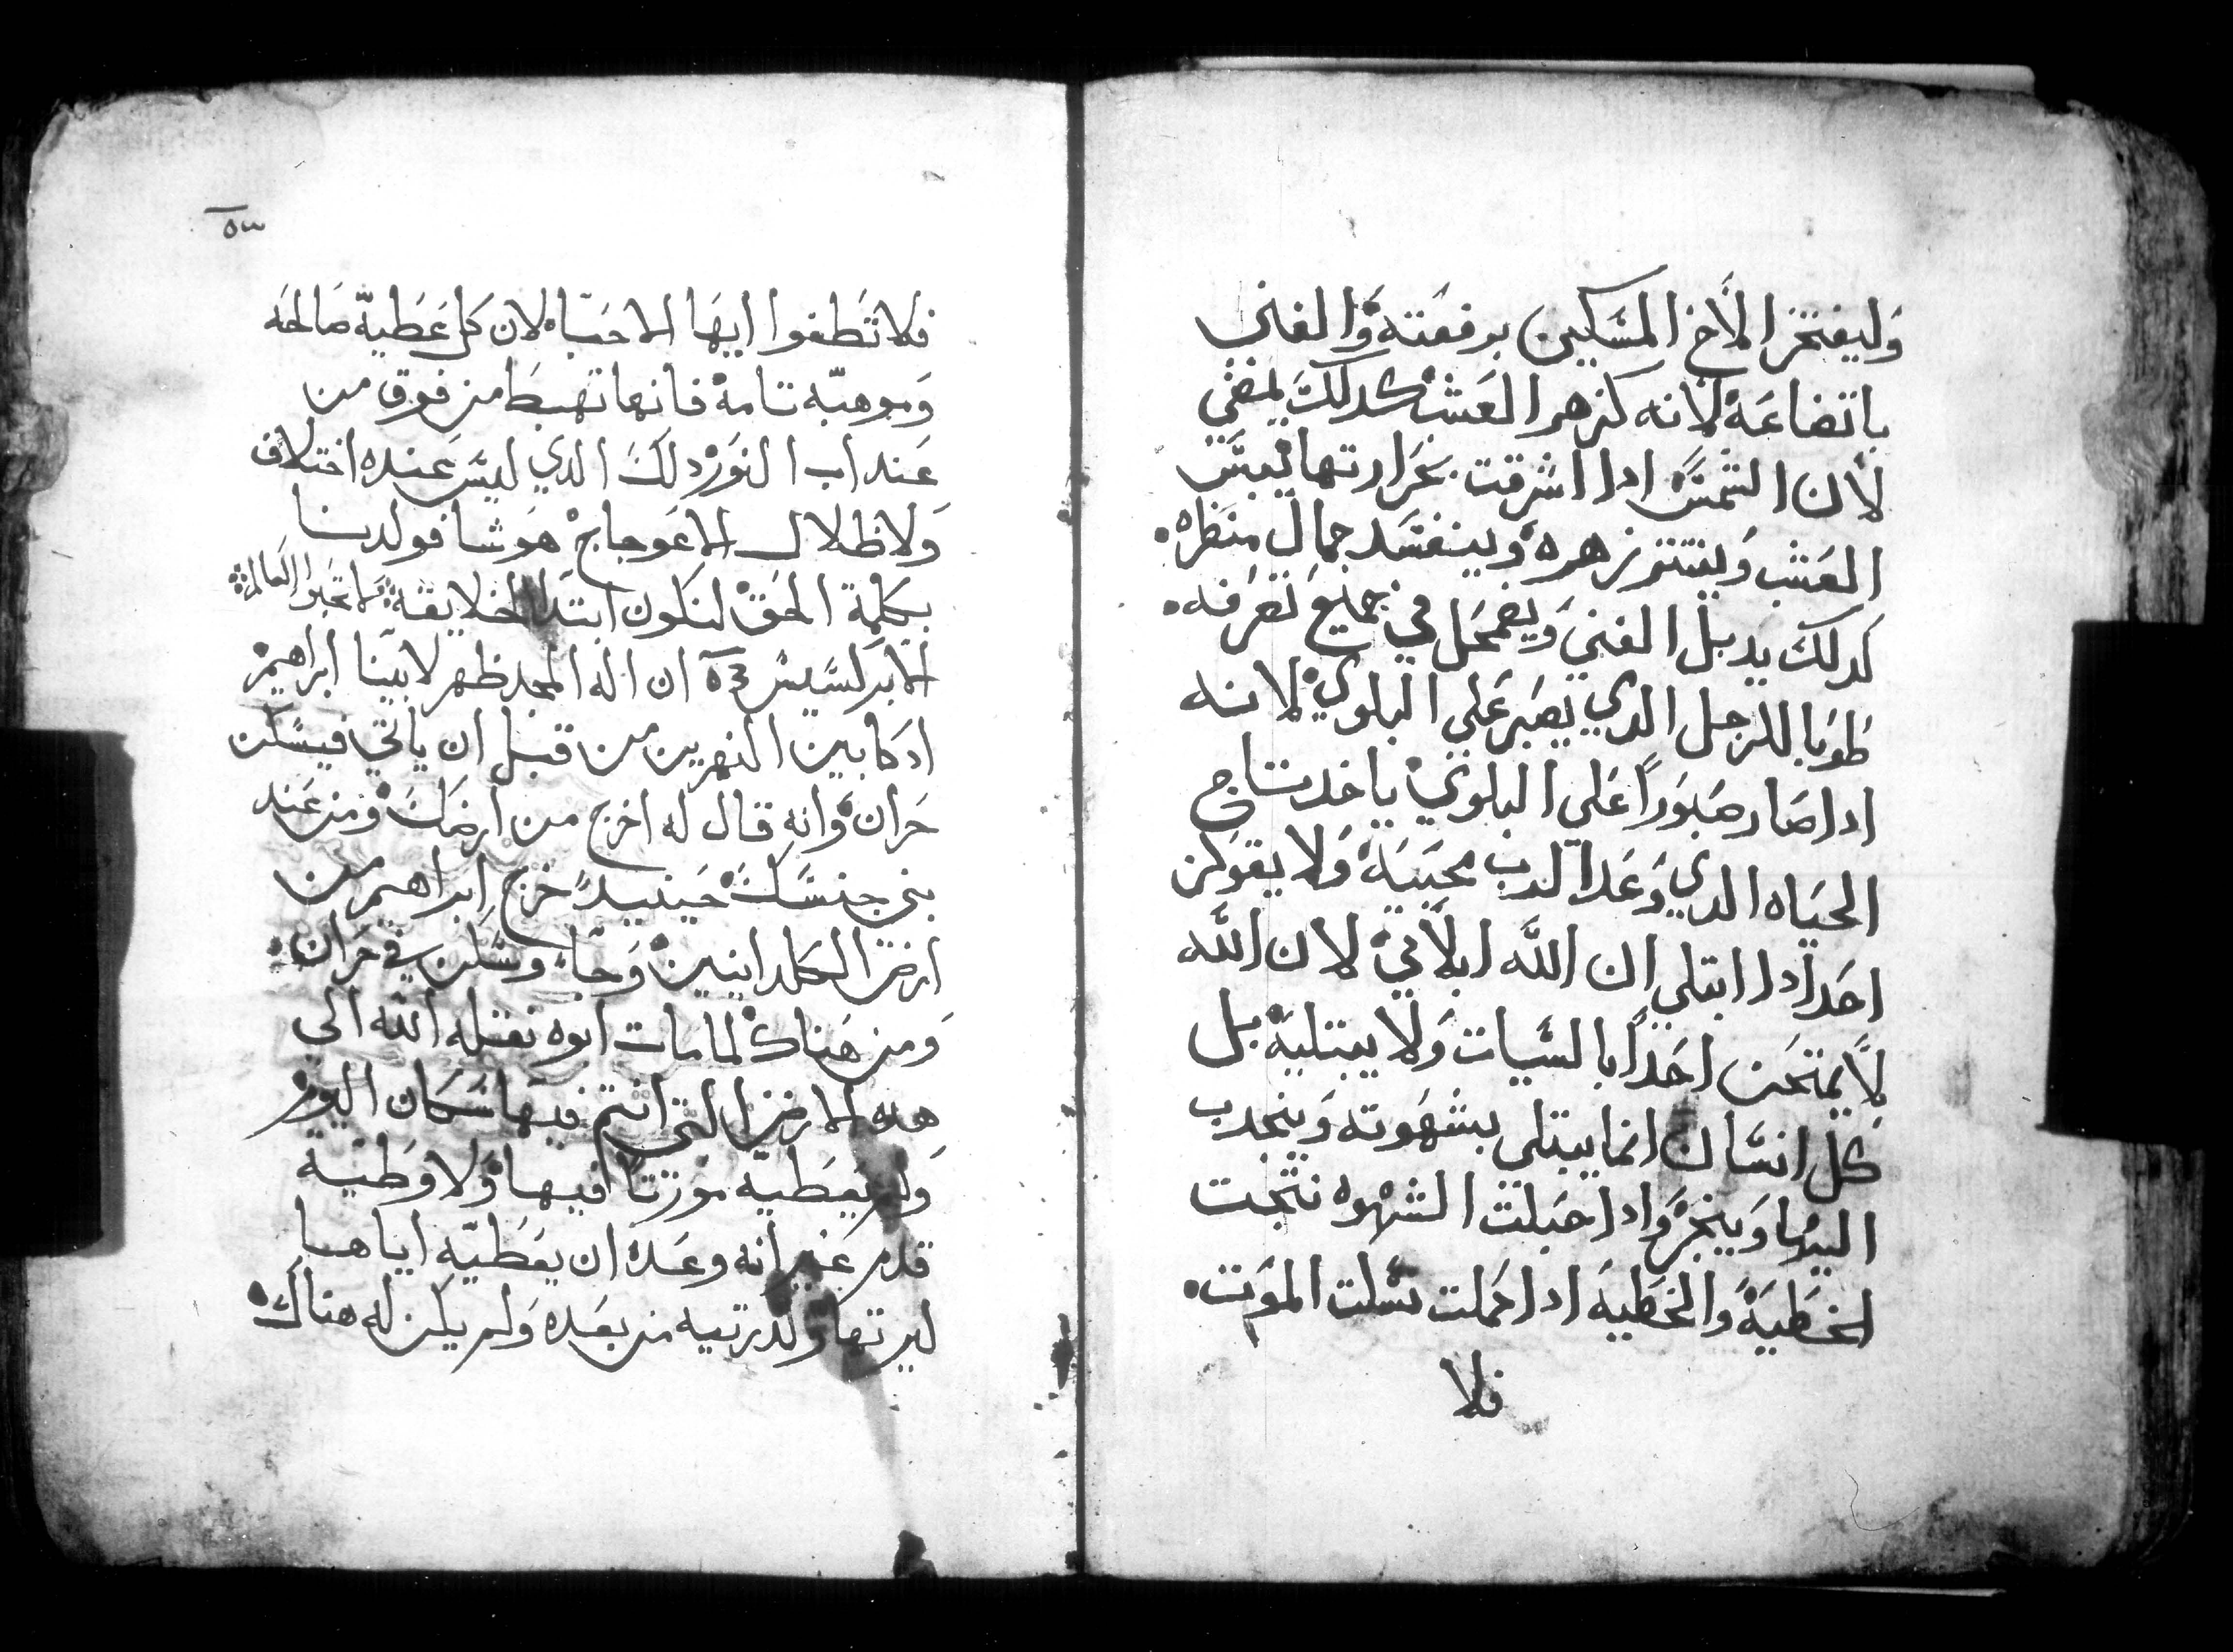 وليفتخر الاخ المسكين برفعته والغني
باتضاعه لانه كزهر العشب كدلك يمضي
لان الشمس ادا اشرقت بحرارتها ييبس
العشب وينتتر زهره ويفسد جمال منظره.
كدلك يدبل الغني ويضمحل في جميع تصرفه.
طوبا للرجل الدي يصبر علي البلوي لانه
ادا صار صبورا على البلوي ياخد تاج
الحياه الدي وعد الرب محبيه ولا يقولن
احد ادا ابتلي ان الله ابلاني لان الله
لا يمتحن احدا بالسيات ولا يبتليه بل
كل انسان انما يبتلي بشهوته وينجدب
اليها وينجر وادا حبلت الشهوه نتجت
الخطيه والخطيه ادا كملت نسلت الموت.
فلا
٥٣
فلا تطغوا ايها الاحباء لان كل عطيه صالحه
وموهبه تامه فانها تهبط من فوق من
عند اب النور دلك الدي ليس عنده اختلاف
ولا ظلال الاعوجاج هو شا فولدنا
بكلمة الحق لنكون ابتدا لخلايقه لا تحبوا العالم
الابركسيس ان اله المجد ظهر لابينا ابراهيم
اد كا بين النهرين من قبل ان ياتي فيسكن
حران وانه قال له اخرج من ارضك ومن عند
بني جنسك حينيد خرج ابراهيم من
ارض الكلدانيين وجاء وسكن في حران.
ومن هناك لما مات ابوه نقله الله الى
هده الارض التي انتم فيها سكان اليوم
ولم يعطيه مورتا فيها ولا وطية
قدم غير انه وعده ان يعطيه اياها
ليرتها ولدرتيه من بعده ولم يكن له هناك